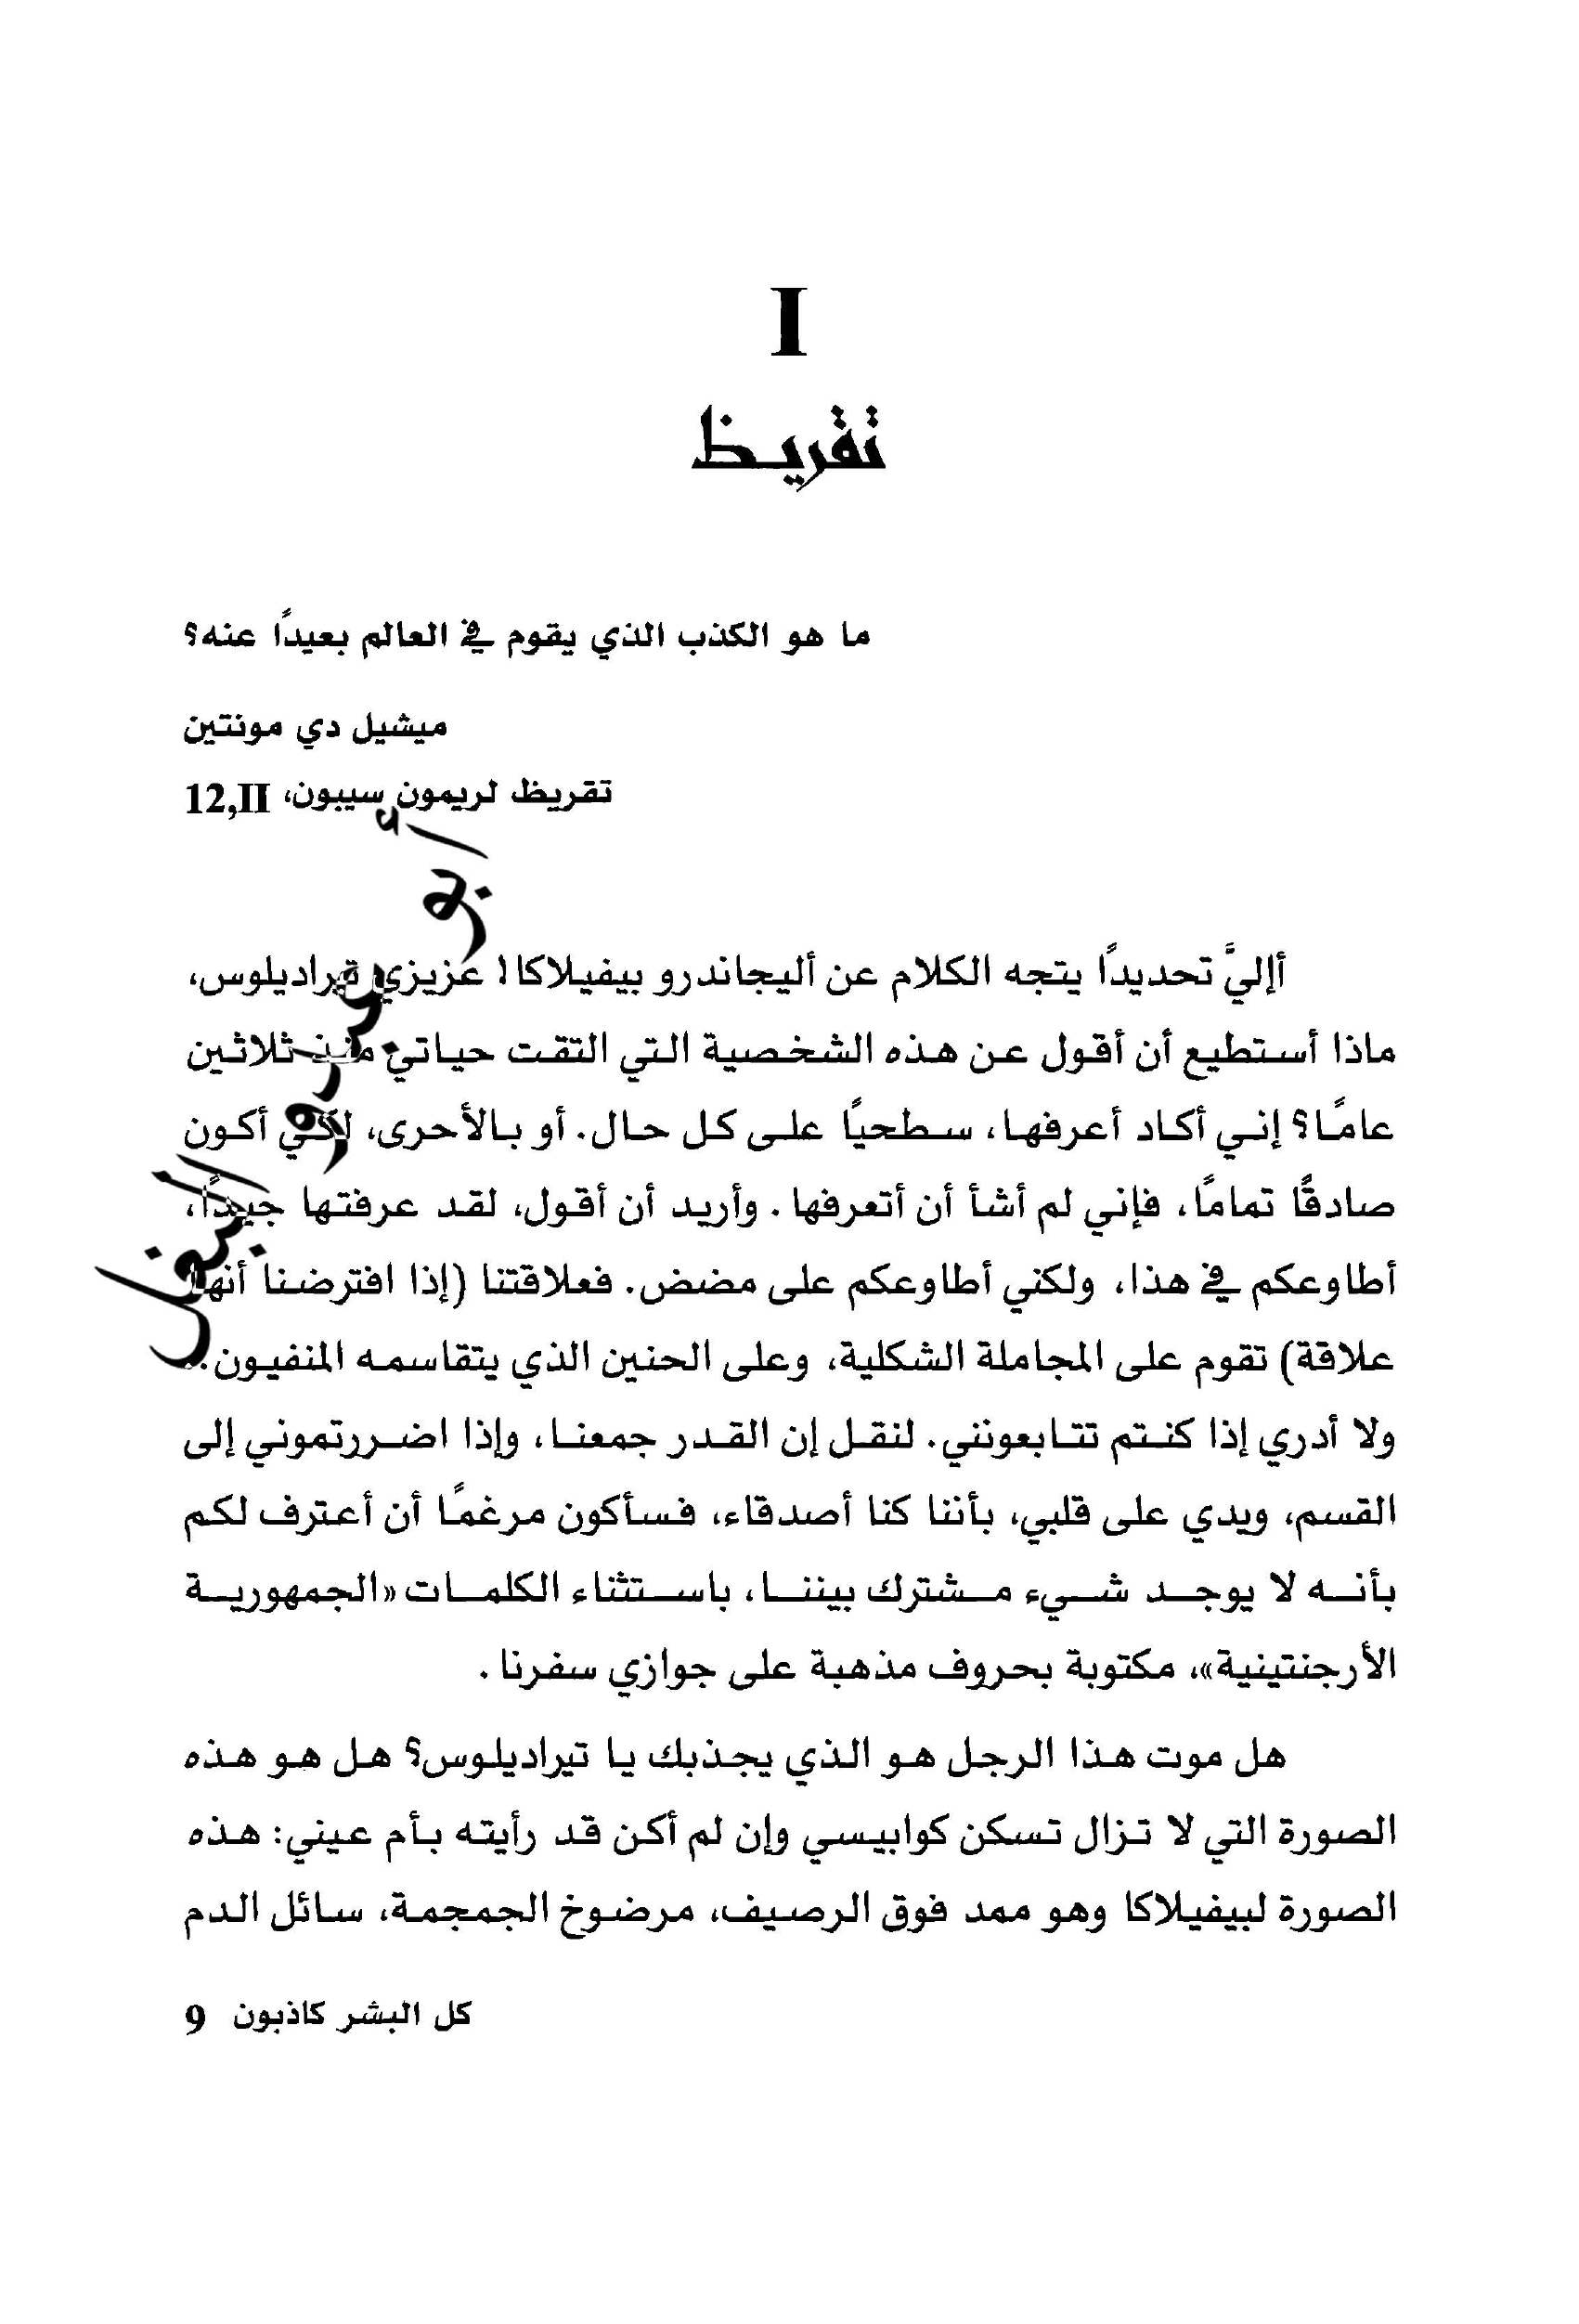 I
تقريظ
ما هو الكذب الذي يقوم في العالم بعيدًا عنه؟
ميشيل دي مونتين
تقريظ لريمون سيبون، 12,II
أإليَّ تحديدًا يتجه الكلام عن أليجاندرو بيفيلاكا! عزيزي تيراديلوس،
ماذا أستطيع أن أقول عن هذه الشخصية التي التقت حياتي منذ ثلاثين
عامًا؟ إني أكاد أعرفها، سطحيًا على كل حال. أو بالأحرى، لكي أكون
صادقًا تمامًا، فإني لم أشأ أن أتعرفها. وأريد أن أقول، لقد عرفتها جيدًا،
أطاوعكم في هذا، ولكني أطاوعكم على مضض. فعلاقتنا (إذا افترضنا أنها
علاقة) تقوم على المجاملة الشكلية، وعلى الحنين الذي يتقاسمه المنفيون..
ولا أدري إذا كنتم تتابعونني. لنقل إن القدر جمعنا، وإذا اضررتموني إلى
القسم، ويدي على قلبي، بأننا كنا أصدقاء، فسأكون مرغمًا أن أعترف لكم
بأنه لا يوجد شيء مشترك بيننا، باستثناء الكلمات «الجمهورية
الأرجنتينية»، مكتوبة بحروف مذهبة على جوازي سفرنا.
هل موت هذا الرجل هو الذي يجذبك يا تيراديلوس؟ هل هو هذه
الصورة التي لا تزال تسكن كوابيسي وإن لم أكن قد رأيته بأم عيني: هذه
الصورة لبيفيلاكا وهو ممد فوق الرصيف، مرضوخ الجمجمة، سائل الدم
كل البشر كاذبون 9
أبو عبدو البغل